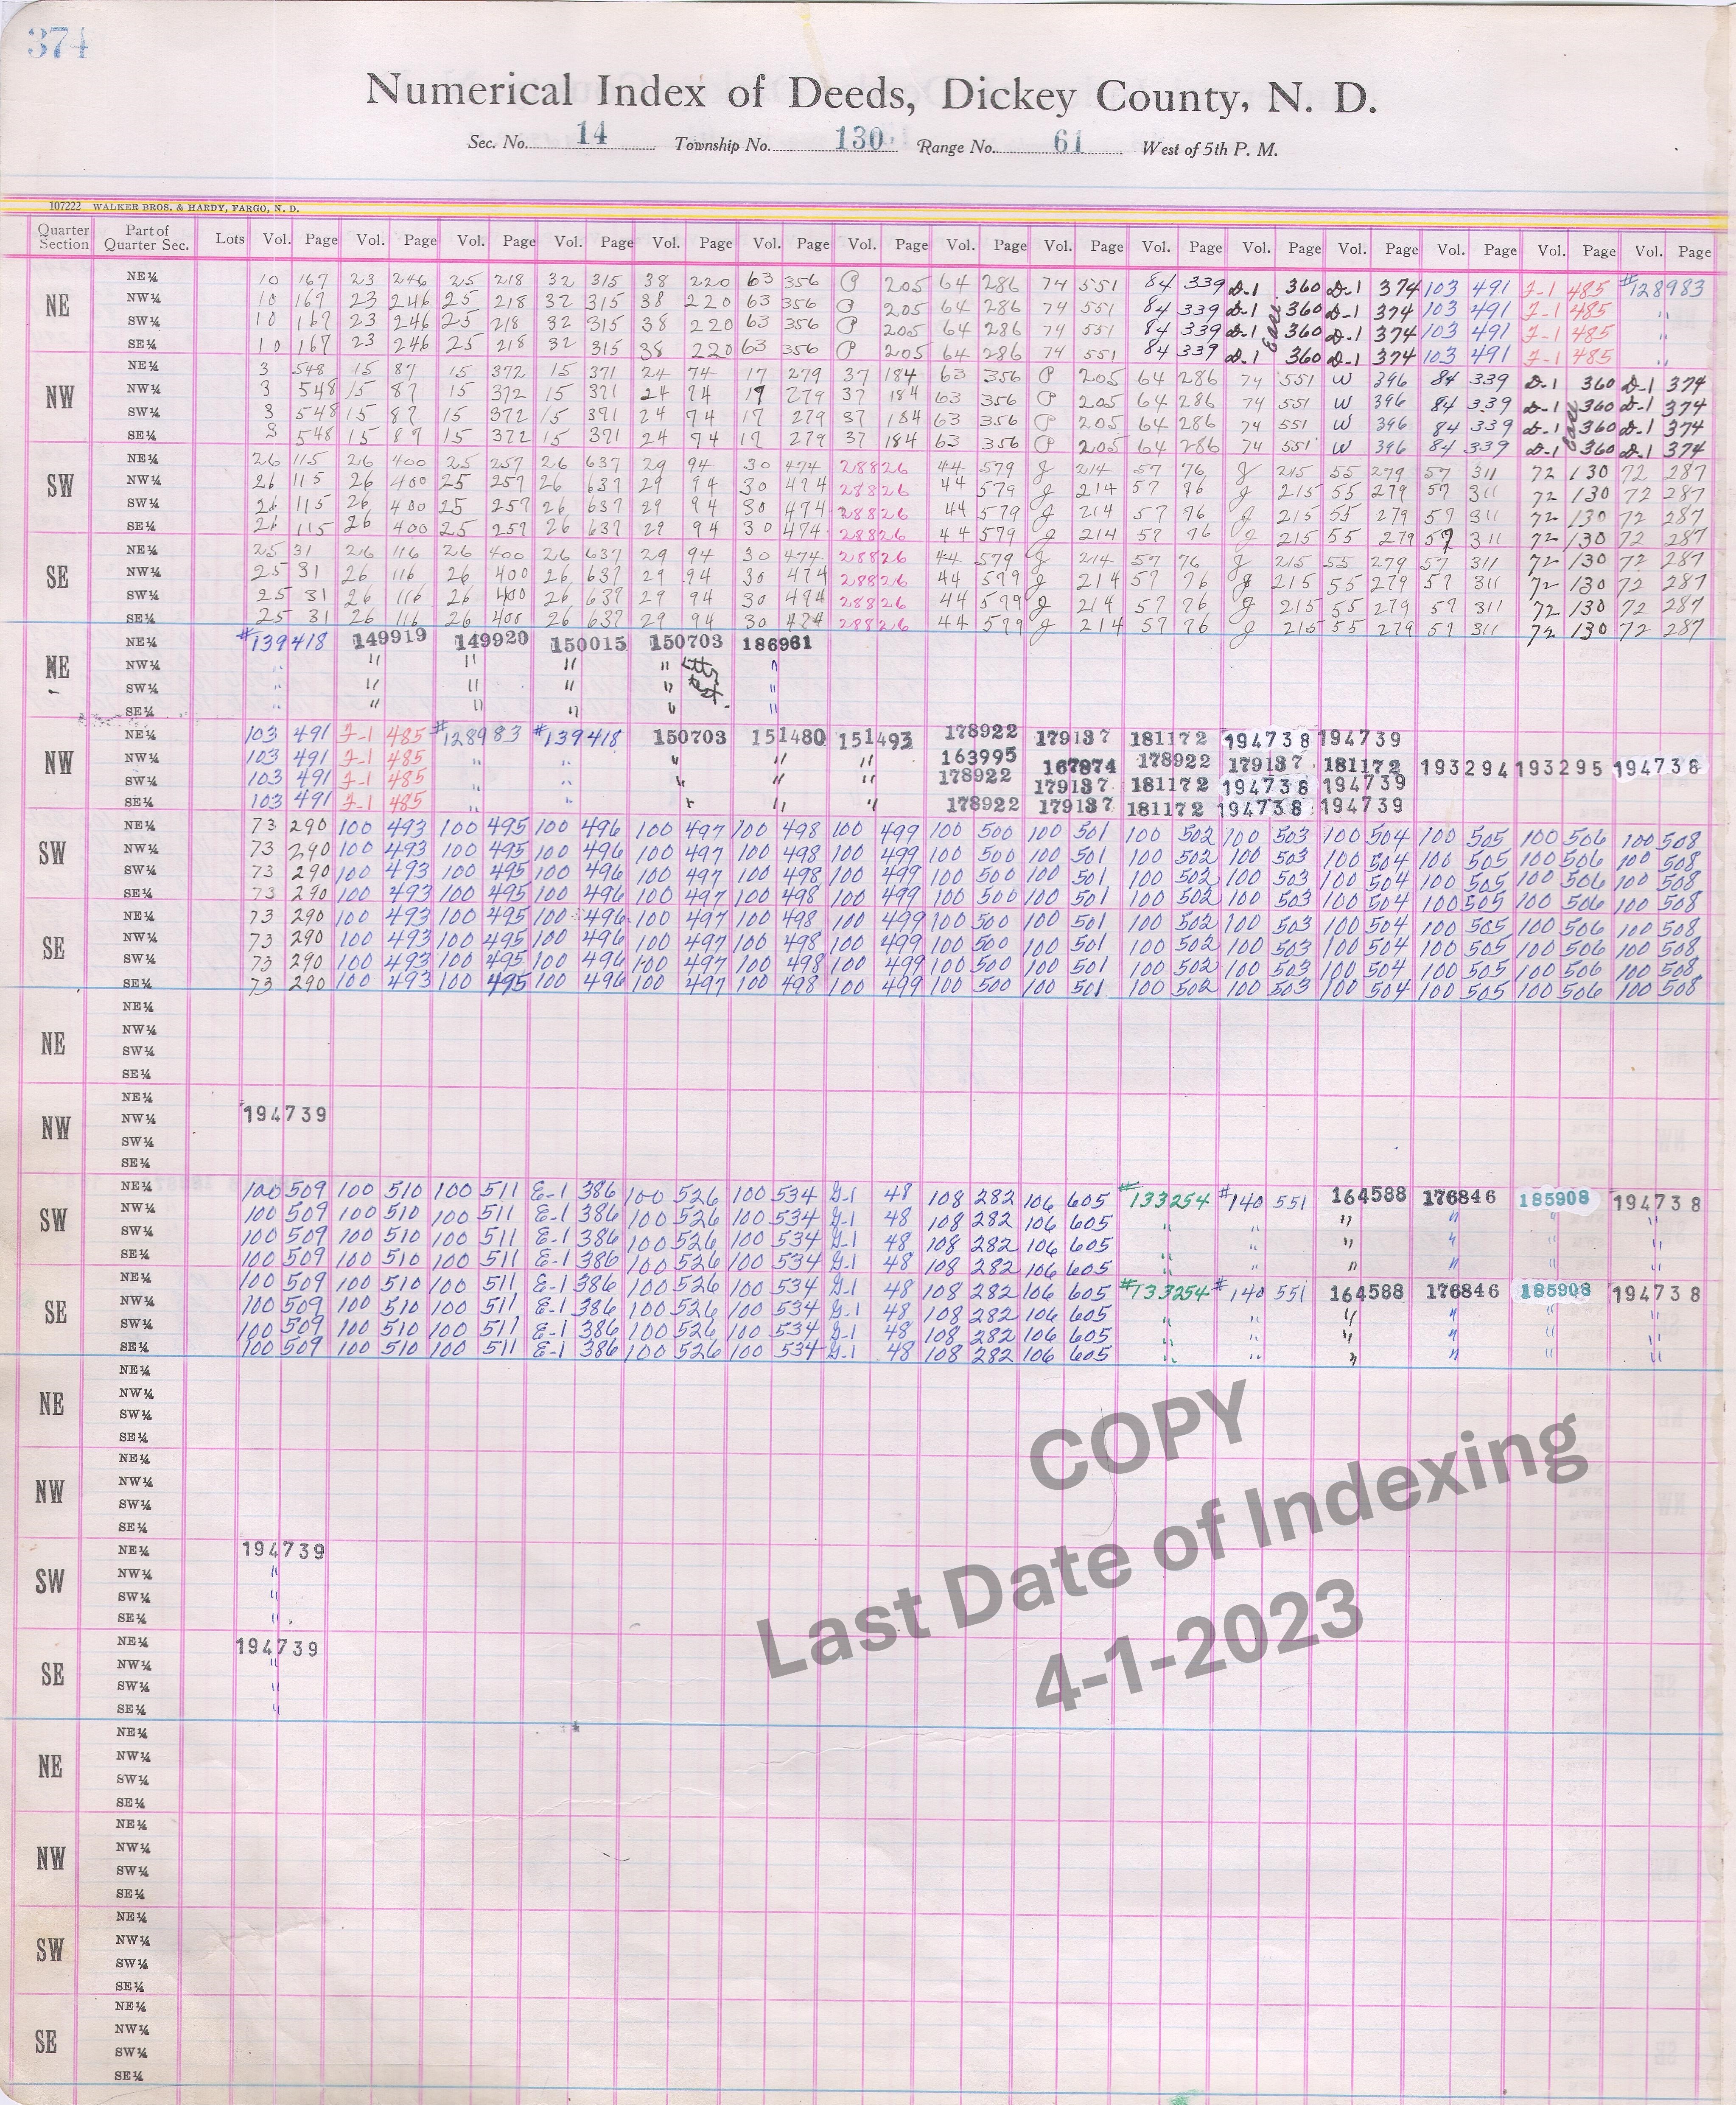 374
Numerical Index of Deeds, Dickey County, N. D.
Sec. No. 14 Township No. 130 Range No. 61 West of 5th P. M.
107222 WALKER BROS. & HARDY, FARGO, N. D.
Quarter Section Part of Quarter Sec. Lots Vol. Page Vol. Page Vol. Page Vol. Page Vol. Page Vol. Page Vol. Page Vol. Page Vol. Page Vol. Page Vol. Page Vol. Page Vol. Page Vol. Page Vol. Page
NE
NE¼ 10 167 23 246 25 218 32 315 38 220 63 356 P 205 64 286 74 551 84 339 D-1 360 D-1 374 103 491 F-1 485 #128983
NW¼ 10 167 23 246 25 218 32 315 38 220 63 356 P 205 64 286 74 551 84 339 D-1 360 D-1 374 103 491 F-1 485 "
SW¼ 10 167 23 246 25 218 32 315 38 220 63 356 P 205 64 286 74 551 84 339 D-1 360 D-1 374 103 491 F-1 485 "
SE¼ 10 167 23 246 25 218 32 315 38 220 63 356 P 205 64 286 74 551 84 339 D-1 360 D-1 374 103 491 F-1 485 "
NW
NE¼ 3 548 15 87 15 372 15 371 24 74 17 279 37 184 63 356 P 205 64 286 74 551 W 396 84 339 D-1 360 D-1 374
NW¼ 3 548 15 87 15 372 15 371 24 74 17 279 37 184 63 356 P 205 64 286 74 551 W 396 84 339 D-1 360 D-1 374
SW¼ 3 548 15 87 15 372 15 371 24 74 17 279 37 184 63 356 P 205 64 286 74 551 W 396 84 339 D-1 360 D-1 374
SE¼ 3 548 15 87 15 372 15 371 24 74 17 279 37 184 63 356 P 205 64 286 74 551 W 396 84 339 D-1 360 D-1 374
SW
NE¼ 26 115 26 400 25 257 26 637 29 94 30 474 28826 44 579 J 214 57 76 J 215 55 279 57 311 72 130 72 287
NW¼ 26 115 26 400 25 257 26 637 29 94 30 474 28826 44 579 J 214 57 76 J 215 55 279 57 311 72 130 72 287
SW¼ 26 115 26 400 25 257 26 637 29 94 30 474 28826 44 579 J 214 57 76 J 215 55 279 57 311 72 130 72 287
SE¼ 26 115 26 400 25 257 26 637 29 94 30 474 28826 44 579 J 214 57 76 J 215 55 279 57 311 72 130 72 287
SE
NE¼ 25 31 26 116 26 400 26 637 29 94 30 474 28826 44 579 J 214 57 76 J 215 55 279 57 311 72 130 72 287
NW¼ 25 31 26 116 26 400 26 637 29 94 30 474 28826 44 579 J 214 57 76 J 215 55 279 57 311 72 130 72 287
SW¼ 25 31 26 116 26 400 26 637 29 94 30 474 28826 44 579 J 214 57 76 J 215 55 279 57 311 72 130 72 287
SE¼ 25 31 26 116 26 400 26 637 29 94 30 474 28826 44 579 J 214 57 76 J 215 55 279 57 311 72 130 72 287
NE
NE¼ #139418 149919 149920 150015 150703 186961
NW¼ " " " " " "
SW¼ " " " " " "
SE¼ " " " " " "
NW
NE¼ 103 491 F-1 485 #128983 #139418 150703 151480 151493 178922 179137 181172 194738 194739
NW¼ 103 491 F-1 485 " " " " " 163995 167874 178922 179137 181172 193294 193295 194738
SW¼ 103 491 F-1 485 " " " " " 178922 179137 181172 194738 194739
SE¼ 103 491 F-1 485 " " " " " 178922 179137 181172 194738 194739
SW
NE¼ 73 290 100 493 100 495 100 496 100 497 100 498 100 499 100 500 100 501 100 502 100 503 100 504 100 505 100 506 100 508
NW¼ 73 290 100 493 100 495 100 496 100 497 100 498 100 499 100 500 100 501 100 502 100 503 100 504 100 505 100 506 100 508
SW¼ 73 290 100 493 100 495 100 496 100 497 100 498 100 499 100 500 100 501 100 502 100 503 100 504 100 505 100 506 100 508
SE¼ 73 290 100 493 100 495 100 496 100 497 100 498 100 499 100 500 100 501 100 502 100 503 100 504 100 505 100 506 100 508
SE
NE¼ 73 290 100 493 100 495 100 496 100 497 100 498 100 499 100 500 100 501 100 502 100 503 100 504 100 505 100 506 100 508
NW¼ 73 290 100 493 100 495 100 496 100 497 100 498 100 499 100 500 100 501 100 502 100 503 100 504 100 505 100 506 100 508
SW¼ 73 290 100 493 100 495 100 496 100 497 100 498 100 499 100 500 100 501 100 502 100 503 100 504 100 505 100 506 100 508
SE¼ 73 290 100 493 100 495 100 496 100 497 100 498 100 499 100 500 100 501 100 502 100 503 100 504 100 505 100 506 100 508
NE
NE¼
NW¼
SW¼
SE¼
NW
NE¼
NW¼ 194739
SW¼
SE¼
SW
NE¼ 100 509 100 510 100 511 E-1 386 100 526 100 534 G-1 48 108 282 106 605 #133254 #140 551 164588 176846 185908 194738
NW¼ 100 509 100 510 100 511 E-1 386 100 526 100 534 G-1 48 108 282 106 605 " " " " " "
SW¼ 100 509 100 510 100 511 E-1 386 100 526 100 534 G-1 48 108 282 106 605 " " " " " "
SE¼ 100 509 100 510 100 511 E-1 386 100 526 100 534 G-1 48 108 282 106 605 " " " " " "
SE
NE¼ 100 509 100 510 100 511 E-1 386 100 526 100 534 G-1 48 108 282 106 605 #133254 #140 551 164588 176846 185908 194738
NW¼ 100 509 100 510 100 511 E-1 386 100 526 100 534 G-1 48 108 282 106 605 " " " " " "
SW¼ 100 509 100 510 100 511 E-1 386 100 526 100 534 G-1 48 108 282 106 605 " " " " " "
SE¼ 100 509 100 510 100 511 E-1 386 100 526 100 534 G-1 48 108 282 106 605 " " " " " "
NE
NE¼
NW¼
SW¼
SE¼
NW
NE¼
NW¼
SW¼
SE¼
SW
NE¼ 194739
NW¼ "
SW¼ "
SE¼ "
SE
NE¼ 194739
NW¼ "
SW¼ "
SE¼ "
COPY
Last Date of Indexing
4-1-2023
NE
NE¼
NW¼
SW¼
SE¼
NW
NE¼
NW¼
SW¼
SE¼
SW
NE¼
NW¼
SW¼
SE¼
SE
NE¼
NW¼
SW¼
SE¼